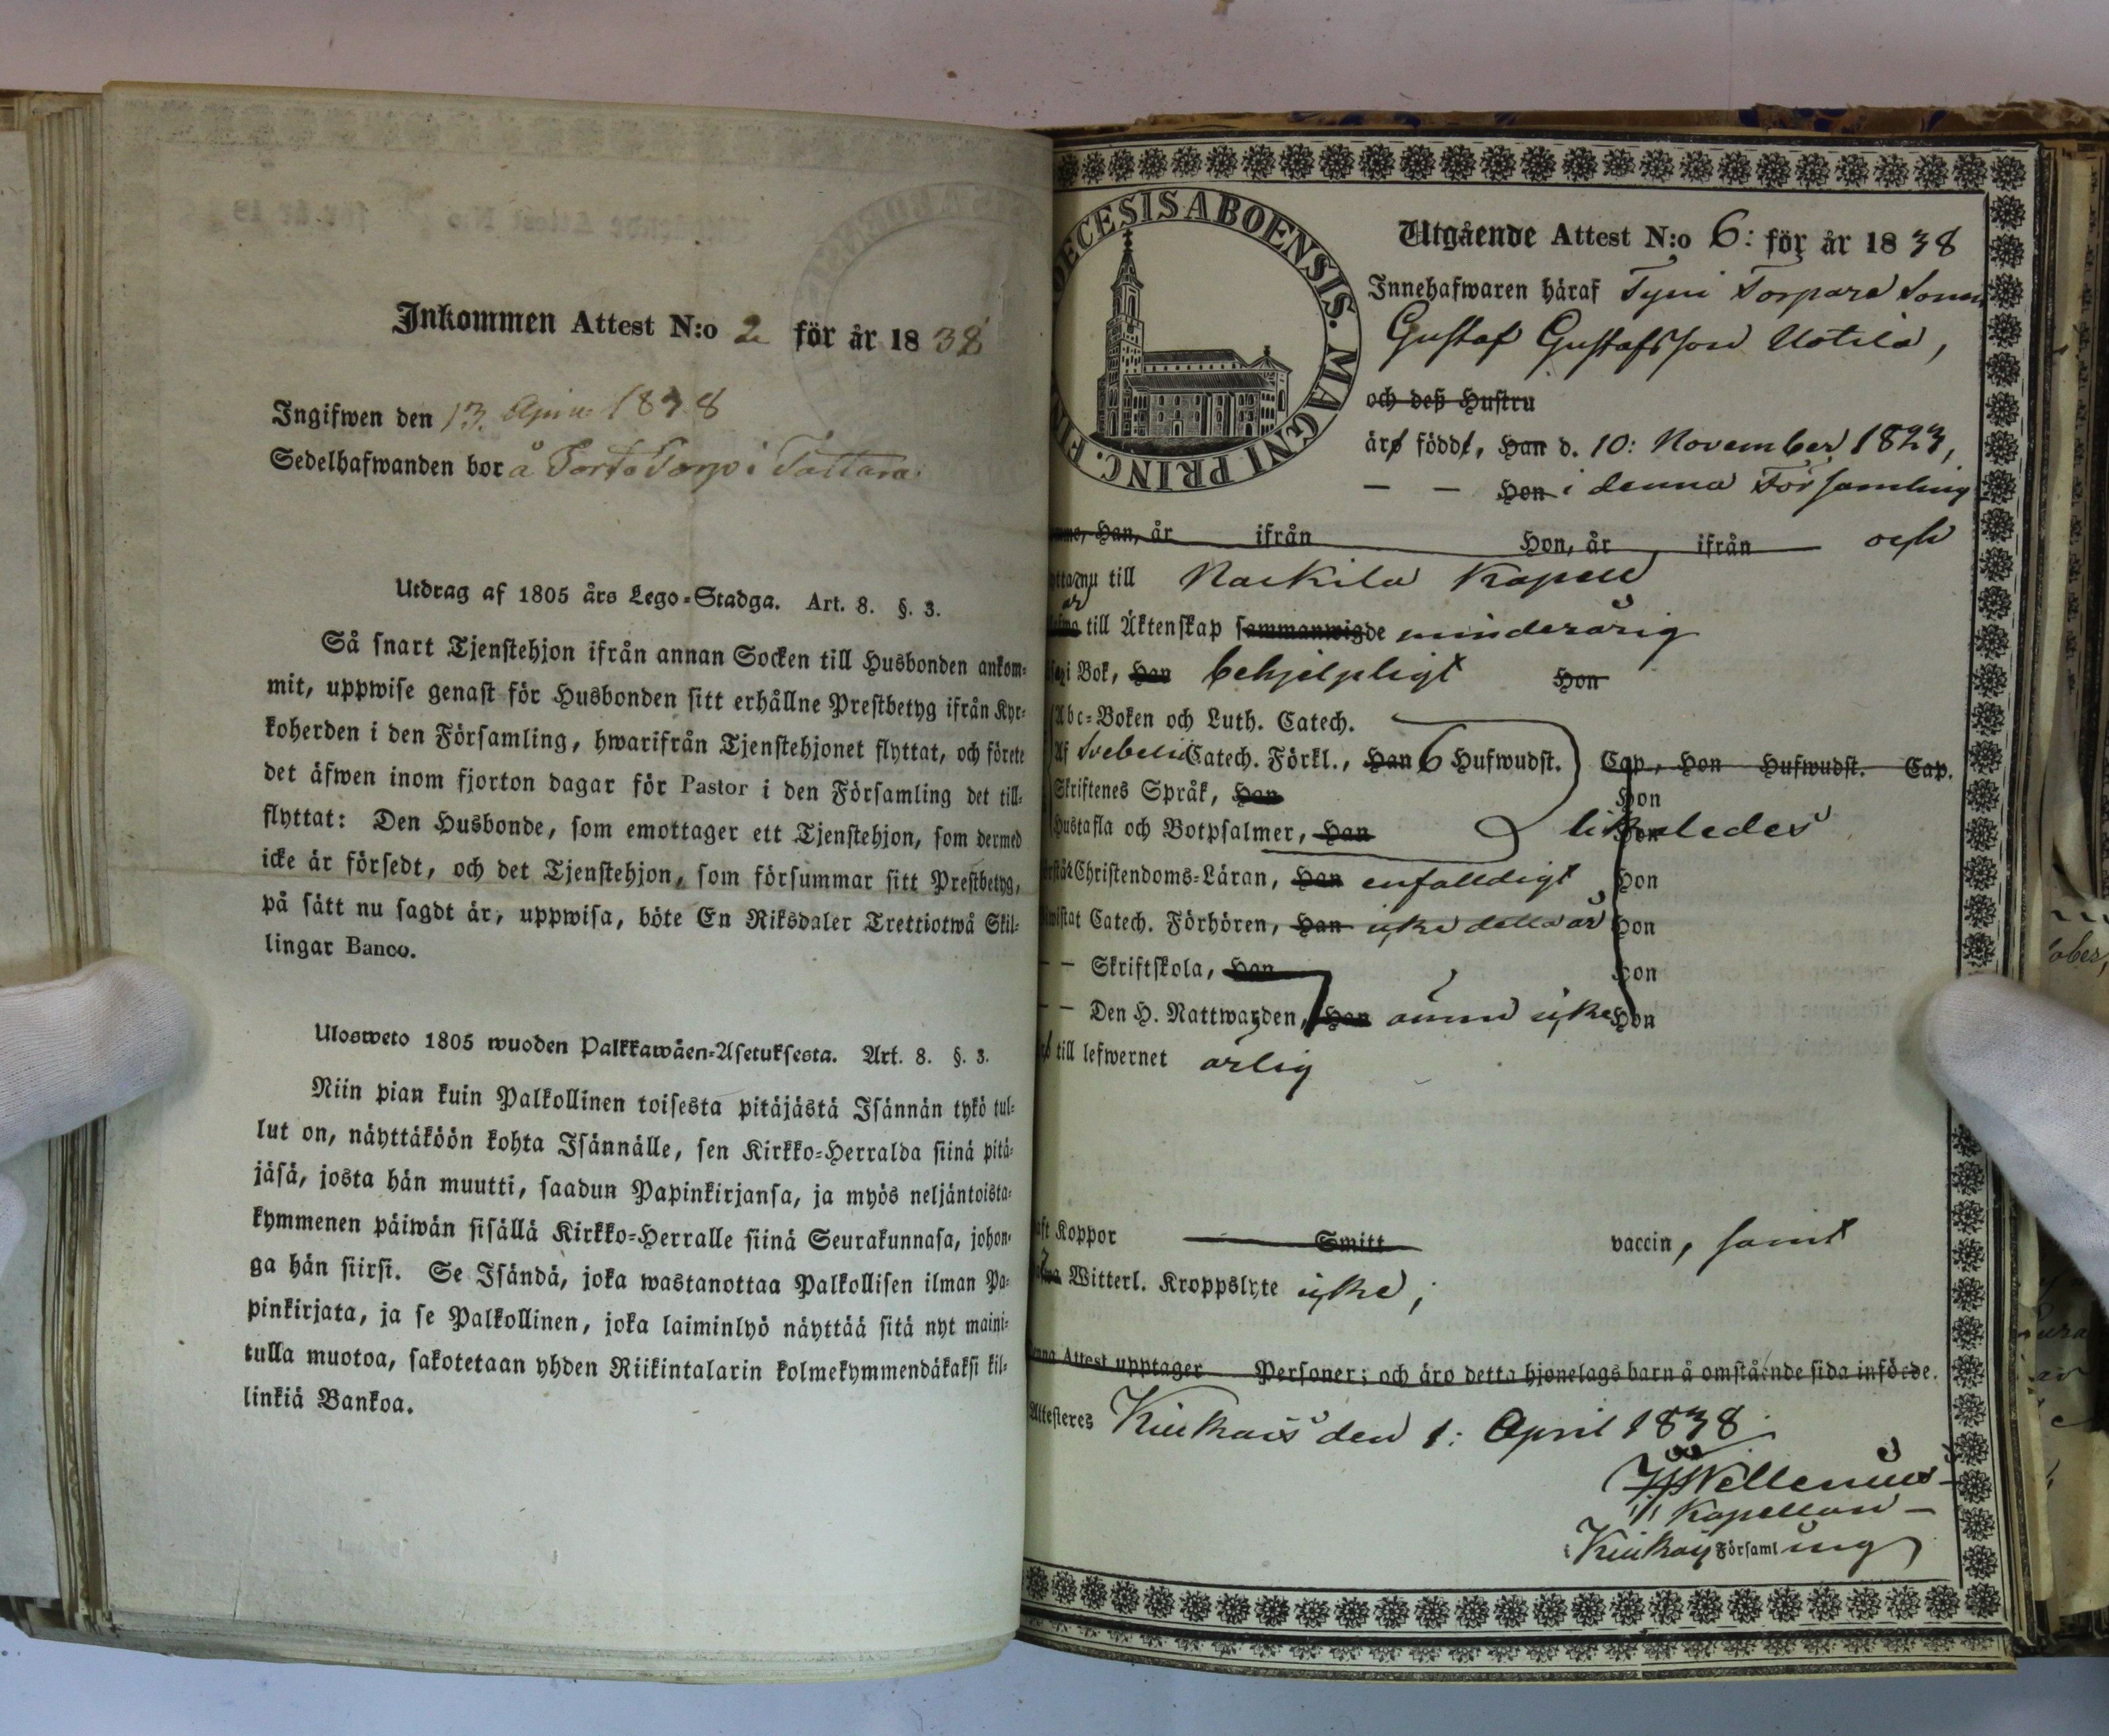 Inkommen Attest N:o 2 för år 1838
Ingifwen den 13. April 1838
Sedelhafwanden bor å Torp i Tattara
Utdrag af 1805 års Lego-Stadga. Art. 8. §. 3.
Så snart Tjenstehjon ifrån annan Socken till Husbonden ankom-
mit, uppwise genast för Husbonden sitt erhållne Prestbetyg ifrån Kyr-
koherden i den Församling, hwarifrån Tjenstehjonet flyttat, och förete
det äfwen inom fjorton dagar för Pastor i den Församling det till-
flyttat: Den Husbonde, som emottager ett Tjenstehjon, som dermed
icke är försedt, och det Tjenstehjon, som försummar sitt Prestbetyg,
på sätt nu sagdt är, uppwisa, böte En Riksdaler Trettiotwå Skil-
lingar Banco.
Ulosweto 1805 wuoden Palkkawäen-Asetuksesta. Art. 8. §. 3.
Niin pian kuin Palkollinen toisesta pitäjästä Isännän tykö tul-
lut on, näyttäköön kohta Isännälle, sen Kirkko-Herralda siinä pitä-
jäsä, josta hän muutti, saadun Papinkirjansa, ja myös neljäntoista-
kymmenen päiwän sisällä Kirkko-Herralle siinä Seurakunnasa, johon-
ga hän siirsi. Se Isändä, joka wastanottaa Palkollisen ilman Pa-
pinkirjata, ja se Palkollinen, joka laiminlyö näyttää sitä nyt maini-
tulla muotoa, sakotetaan yhden Riikintalarin kolmekymmendäkaksi kil-
linkiä Bankoa.
DIOECESIS ABOENSIS. MAGNI PRINC. FIN
Utgående Attest N:o 6: för år 1838
Innehafwaren häraf Tyni Torpare Sonen
Gustaf Gustafsson Uotila,
och deß Hustru
äro födde, Han d. 10: November 1823,
— — Hon i denna Församling
Han, år ifrån Hon, år ifrån och
nu till Nackila Kapell
är till Äktenskap sammanwigde minderårig
i Bok, Han behjelpligt Hon
Abc-Boken och Luth. Catech.
Af Svebelii Catech. Förkl., Han 6 Hufwudst. Cap., Hon Hufwudst. Cap.
Skriftenes Språk, Han Hon
Hustafla och Botpsalmer, Han likaledes Hon
Christendoms-Läran, Han enfalldigt Hon
Catech. Förhören, Han icke detta år Hon
— — Skriftskola, Han Hon
— — Den H. Nattwarden, Han ännu icke Hon
till lefwernet ärlig
Koppor Smitt vaccin, samt
Witterl. Kroppslyte icke;
Attest upptager Personer; och äro detta hjonelags barn å omstående sida införde.
Attesteres Kiukais den 1: April 1838
Wellenius
Kapellan
i Kiukais Församling